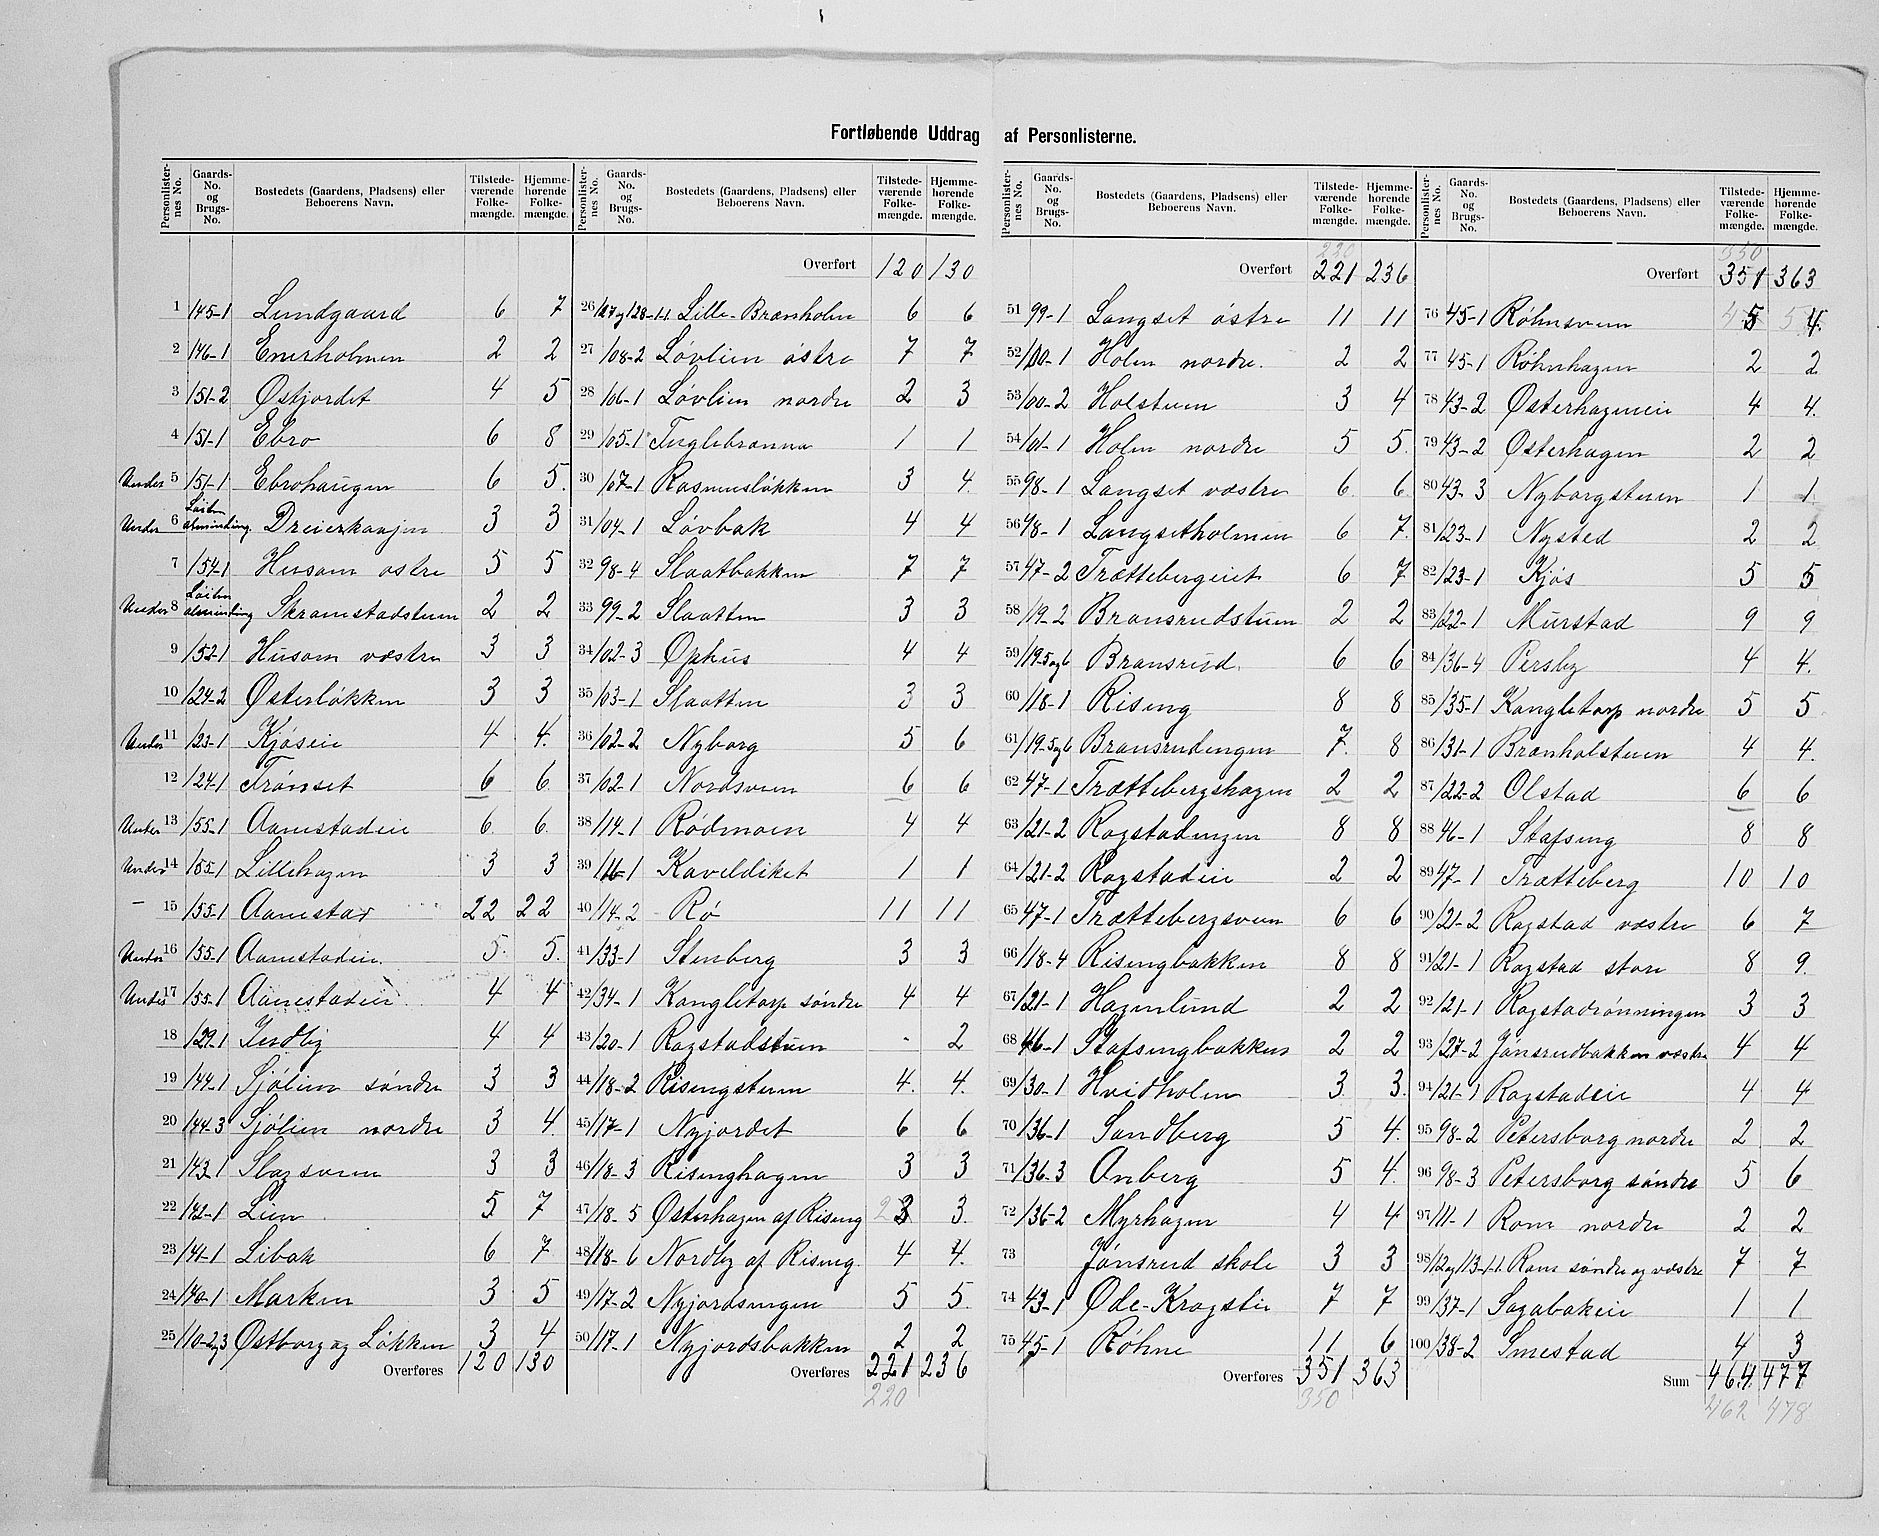 Fortløbende Uddrag af Personlisterne.
Personlisternes No. Gaards-No. og Brugs-No. Bostedets (Gaardens, Pladsens) eller Beboerens Navn. Tilstedeværende Folkemængde. Hjemmehørende Folkemængde.
1 145-1 Lundgaard 6 7
2 146-1 Enerholmen 2 2
3 151-2 Østjordet 4 5
4 151-1 Ebro 6 8
Under 5 151-1 Ebrohaugen 6 5.
Under 6 Løiten alminding Dreierkaajen 3 3
7 154-1 Husom østre 5 5
Under 8 Løiten alminding Skramstadstuen 2 2
9 152-1 Husom vestre 3 3
10 124-2 Østerløkken 3 3
Under 11 123-1 Kjøseie 4 4.
12 124-1 Trønset 6 6
Under 13 155-1 Aamestadeie 6. 6.
Under 14 155-1 Lillehagen 3 3
- 15 155-1 Aamestad 22 22
Under 16 155-1 Aamestadeie. 5. 5.
Under 17 155-1 Aamestadeie 4 4
18 129-1 Indby 4 4
19 144-1 Sjølien søndre 3 3
20 144-3 Sjølien nordre 3 4.
21 143-1 Slagsveen 3 3
22 142-1 Lien 5 7
23 141-1 Libak 6 7
24 140-1 Marken 3 5
25 110-2og3 Østborg og Løkken 3 4
Overføres 120 130
Personlisternes No. Gaards-No. og Brugs-No. Bostedets (Gaardens, Pladsens) eller Beboerens Navn. Tilstedeværende Folkemængde. Hjemmehørende Folkemængde.
Overført 120 130
26 127og128-1.1 Lille-Brænholen 6 6
27 108-2 Løvlien østre 7 7
28 106-1 Løvlien nordre 2 3
29 105-1 Fuglebrænna 1 1
30 107-1 Rasmusløkken 3 4.
31 104-1 Løvbak 4 4
32 98-4 Slaatbakken 7 7
33 99-2 Slaatten 3 3
34 102-3 Ophus 4 4
35 103-1 Slaatten 3 3
36 102-2 Nyborg 5 6
37 102-1 Nordsveen 6 6
38 114-1 Rødmoen 4 4
39 116-1 Kaveldiket 1 1
40 114-2 Rø 11 11
41 133-1 Stenberg 3 3
42 134-1 Kongletorp søndre 4 4
43 120-1 Rogstadstuen - 2
44 118-2 Risengstuen 4. 4.
45 117-1 Nyjordet 6 6
46 118-3 Risenghagen 3 3
47 118-5 Østerhagen af Riseng 2 3 3.
48 118-6 Nordby af Riseng. 4 4.
49 117-2 Nyjordsengen 5 5.
50 117-1 Nyjordsbakken 2 2
Overføres 221 236
220
Personlisternes No. Gaards-No. og Brugs-No. Bostedets (Gaardens, Pladsens) eller Beboerens Navn. Tilstedeværende Folkemængde. Hjemmehørende Folkemængde.
220
Overført 221 236
51 99-1 Langset østre 11 11
52 100-1 Holen nordre. 2 2
53 100-2 Holstuen 3 4
54 101-1 Holen nordre 5 5.
55 98-1 Langset vestre 6 6
56 98-1 Langsetholmen 6 7.
57 47-2 Trættebergeiet 6 7
58 119-2 Bransrudstuen 2 2
59 119-5og6 Bransrud. 6 6
60 118-1 Riseng 8 8
61 119-5og6 Bransrudengen 7. 8
62 47-1 Trættebergshagen 2 2
63 121-2 Rogstadengen 8 8
64 121-2 Rogstadeie 2 2
65 47-1 Trættebergsveen 6 6
66 118-4 Risengbakken 8 8
67 121-1 Hagenlund 2 2
68 46-1 Stafsengbakken 2 2
69 130-1 Hvidholen 3. 3.
70 136-1 Sandberg 5 4.
71 136-3 Anberg 5 4.
72 136-2 Myrhagen 4 4
73 Jønsrud skole 3 3
74 43-1 Øde-Kragstie 7 7
75 45-1 Røhne 11 6
Overføres 351 363
350
Personlisternes No. Gaards-No. og Brugs-No. Bostedets (Gaardens, Pladsens) eller Beboerens Navn. Tilstedeværende Folkemængde. Hjemmehørende Folkemængde.
350
Overført 351 363
76 45-1 Røhnsveen 4 5 5 4.
77 45-1 Røhnhagen 2 2
78 43-2 Østerhageneie 4 4.
79 43-2 Østerhagen 2 2
80 43-3 Nyborgstuen 1 1
81 123-1 Nysted 2 2
82 123-1 Kjøs 5 5
83 122-1 Murstad 9 9
84 136-4 Persby 4 4.
85 135-1 Kongletorp nordre 5 5
86 131-1 Brænholstuen 4 4.
87 122-2 Olstad 6 6
88 46-1 Stafseng 8 8
89 47-1 Trætteberg 10 10
90 121-2 Rogstad vestre 6 7
91 121-1 Rogstad store 8 9.
92 121-1 Rogstadrønningen 3 3
93 127-2 Jønsrudbakken vestre 4 4
94 121-1 Rogstadeie 4 4
95 98-2 Petersborg nordre 2 2
96 98-3 Petersborg søndre 5 6
97 111-1 Rom nordre 2 2
98 112og113-1.1. Rom søndre og vestre 7 7
99 137-1 Sagabakeie 1 1
100 138-2 Smestad 4 3
Sum 464 477
462 478